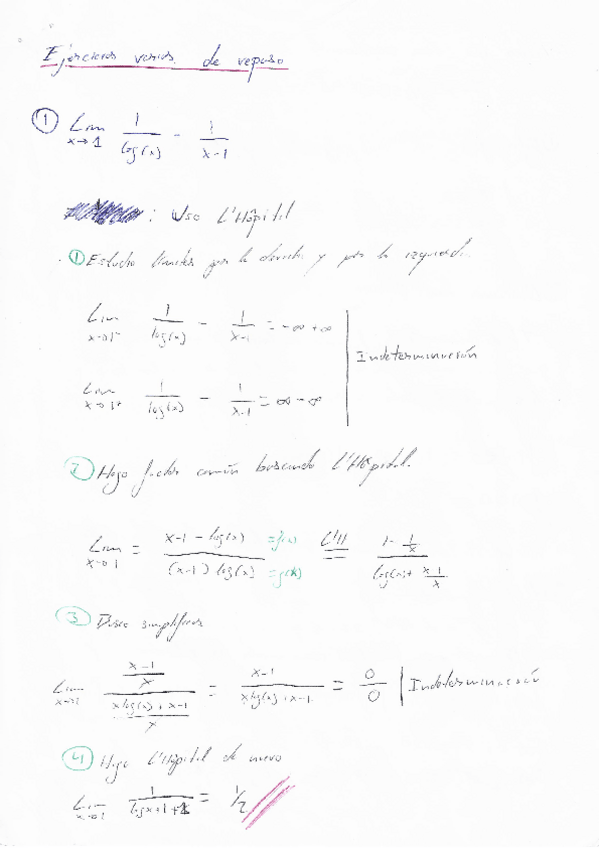 Ejercicios varios de repaso
① Lim x→1 1/log(x) - 1/x-1
: Uso L'Hôpital
① Estudio límites por la derecha y por la izquierda.
Lim x→1⁻ 1/log(x) - 1/x-1 = -∞ +∞
Indeterminación
Lim x→1⁺ 1/log(x) - 1/x-1 = ∞ - ∞
② Hago factor común buscando L'Hôpital.
Lim x→1 = x-1-log(x) =f(x) / (x-1) log(x) =g(x) L'H = 1-1/x / log(x)+ x-1/x
③ simplificar
Lim x→1 x-1/x / xlog(x)+x-1/x = x-1 / xlog(x)+x-1 = 0/0 | Indeterminación
④ Hago L'Hôpital de nuevo
Lim x→1 1/logx+1+1 = 1/2